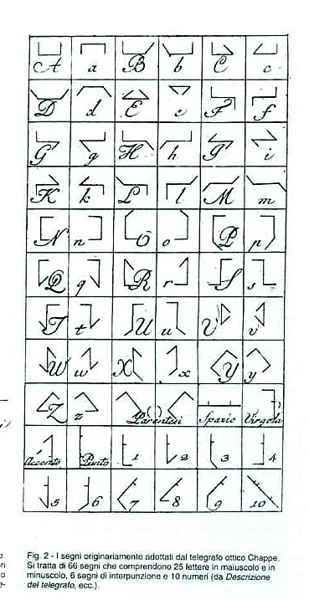 A a B b C c
D d E e F f
G g H h I i
K k L l M m
N n O o P p
Q q R r S s
T t U u V v
W w X x Y y
Z z Parentesi Spazio Virgola
Accento Punto 1 2 3 4
5 6 7 8 9 10
Fig. 2 - I segni originariamente adottati dal telegrafo ottico Chappe.
Si tratta di 66 segni che comprendono 25 lettere in maiuscolo e in
minuscolo, 6 segni di interpunzione e 10 numeri (da Descrizione
del telegrafo, ecc.).